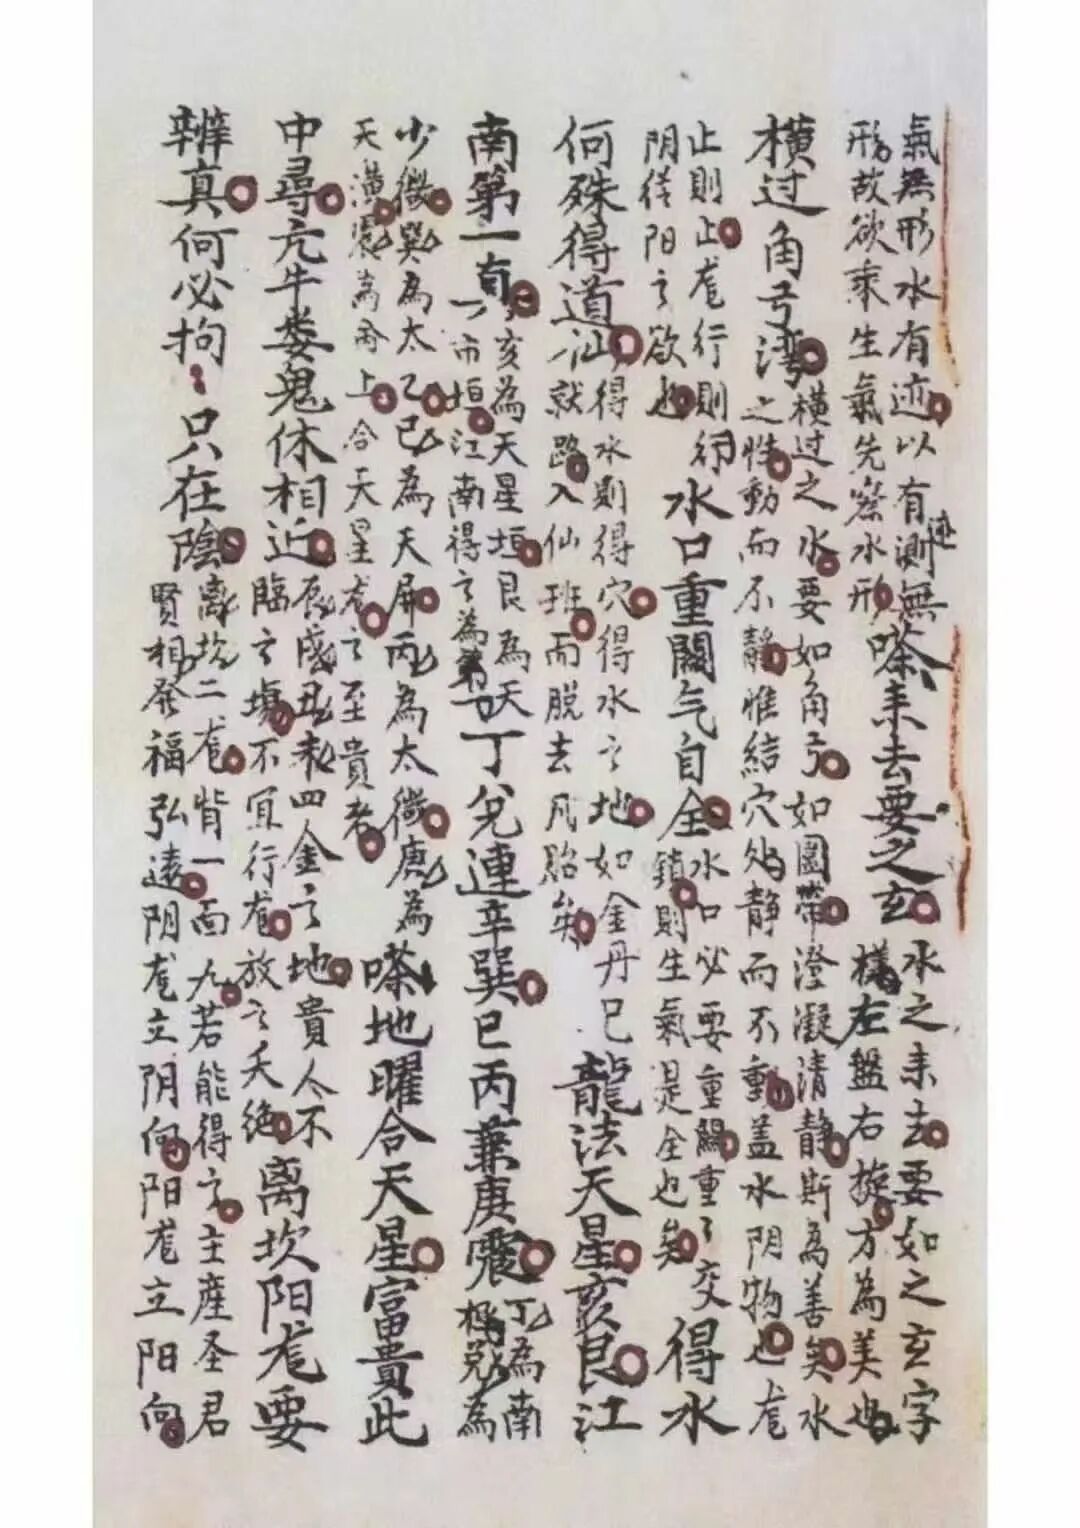 氣無形水有迹以有測無
形故欲乘生氣先察水形
迹
嗏来去要之玄
水之来去要如之玄字
樣左盤右旋方為美也
橫过角弓湾
橫过之水要如角弓如圍帶澄凝清静斯為善矣水
之性動而不静惟結穴处静而不動盖水阴物也龙
止則止龙行則行
阴從阳之欲也
水口重關气自全
水口必要重關重々交
鎖則生氣是全也矣
得水
何殊得道仙
得水則得穴得水之地如金丹已
就路入仙班而脱去凡胎矣
龍法天星亥艮江
南第一奇
亥為天星垣艮為天
市垣江南得之為第一
丁兌連辛巽巳丙兼庚震
丁為南
極兌為
少微巽為太乙巳為天屏丙為太微庚為
天潢震為帝上合天星龙之至貴者
嗏地曜合天星富貴此
中尋亢牛娄鬼休相近
辰戌丑未四金之地貴人不
臨之塲不宜行龙放之夭絶
离坎阳龙要
辨真何必拘只在陰
离坎二龙背一面九若能得之主産圣君
賢相発福弘遠阴龙立阴向阳龙立阳向